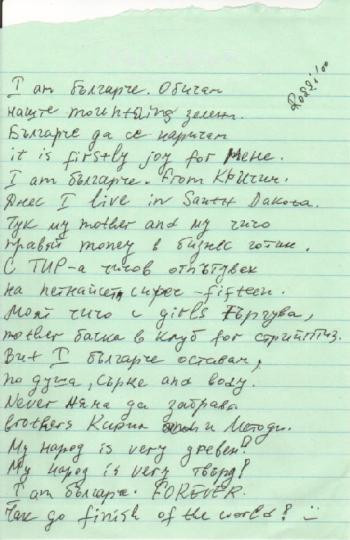 Rossi '00
I am българче. Обичам
наште mountaing зелени.
Българче да се наричам
it is firstly joy for мене.
I am българче. From Кричим.
Днес I live in Sauth Dakota.
Тук my mother and my чичо
правят money в бизнес готин.
С ТИР-а чичов отпътувах
на петнайсет сирес - fifteen.
Моят чичо с girls търгува,
mother бачка в клуб for стрийптиз.
Вит I българче оставам,
по душа, сърце and body.
Never няма да забравя
brothers Кирил и Методи.
My народ is very древен!
My народ is very твърд!
I am българче. FOREVER.
Чак до finish of the world!